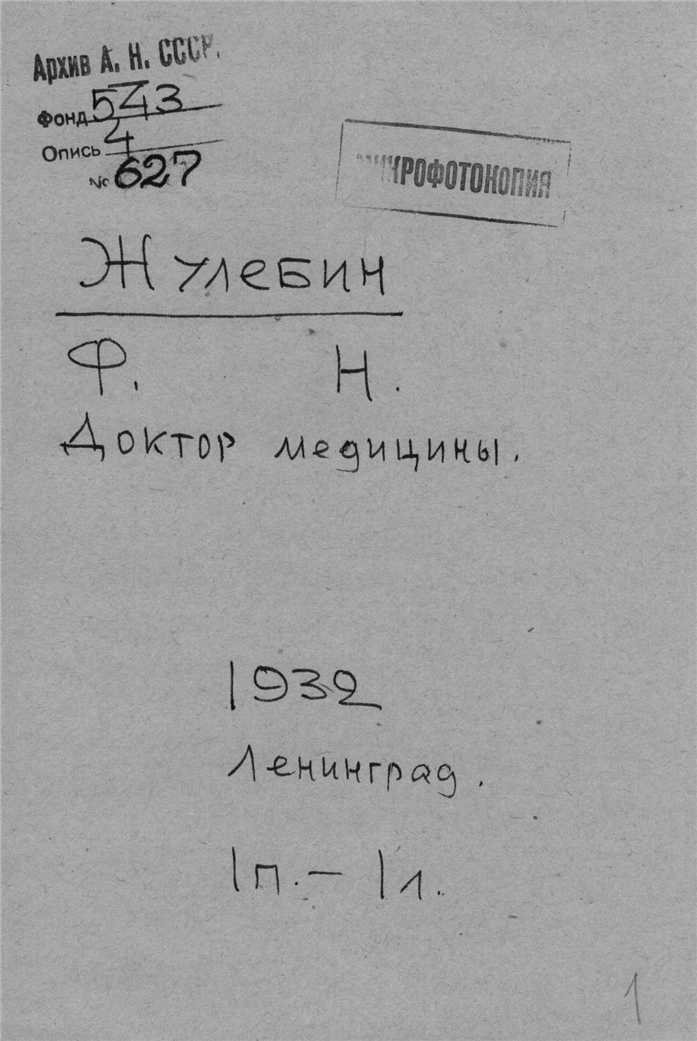 Архив А. Н. СССР.
Фонд 543
Опись 4
№ 627
МИКРОФОТОКОПИЯ
Жулебин
Ф. Н.
Доктор медицины.
1932
Ленинград.
1п. – 1л.
1